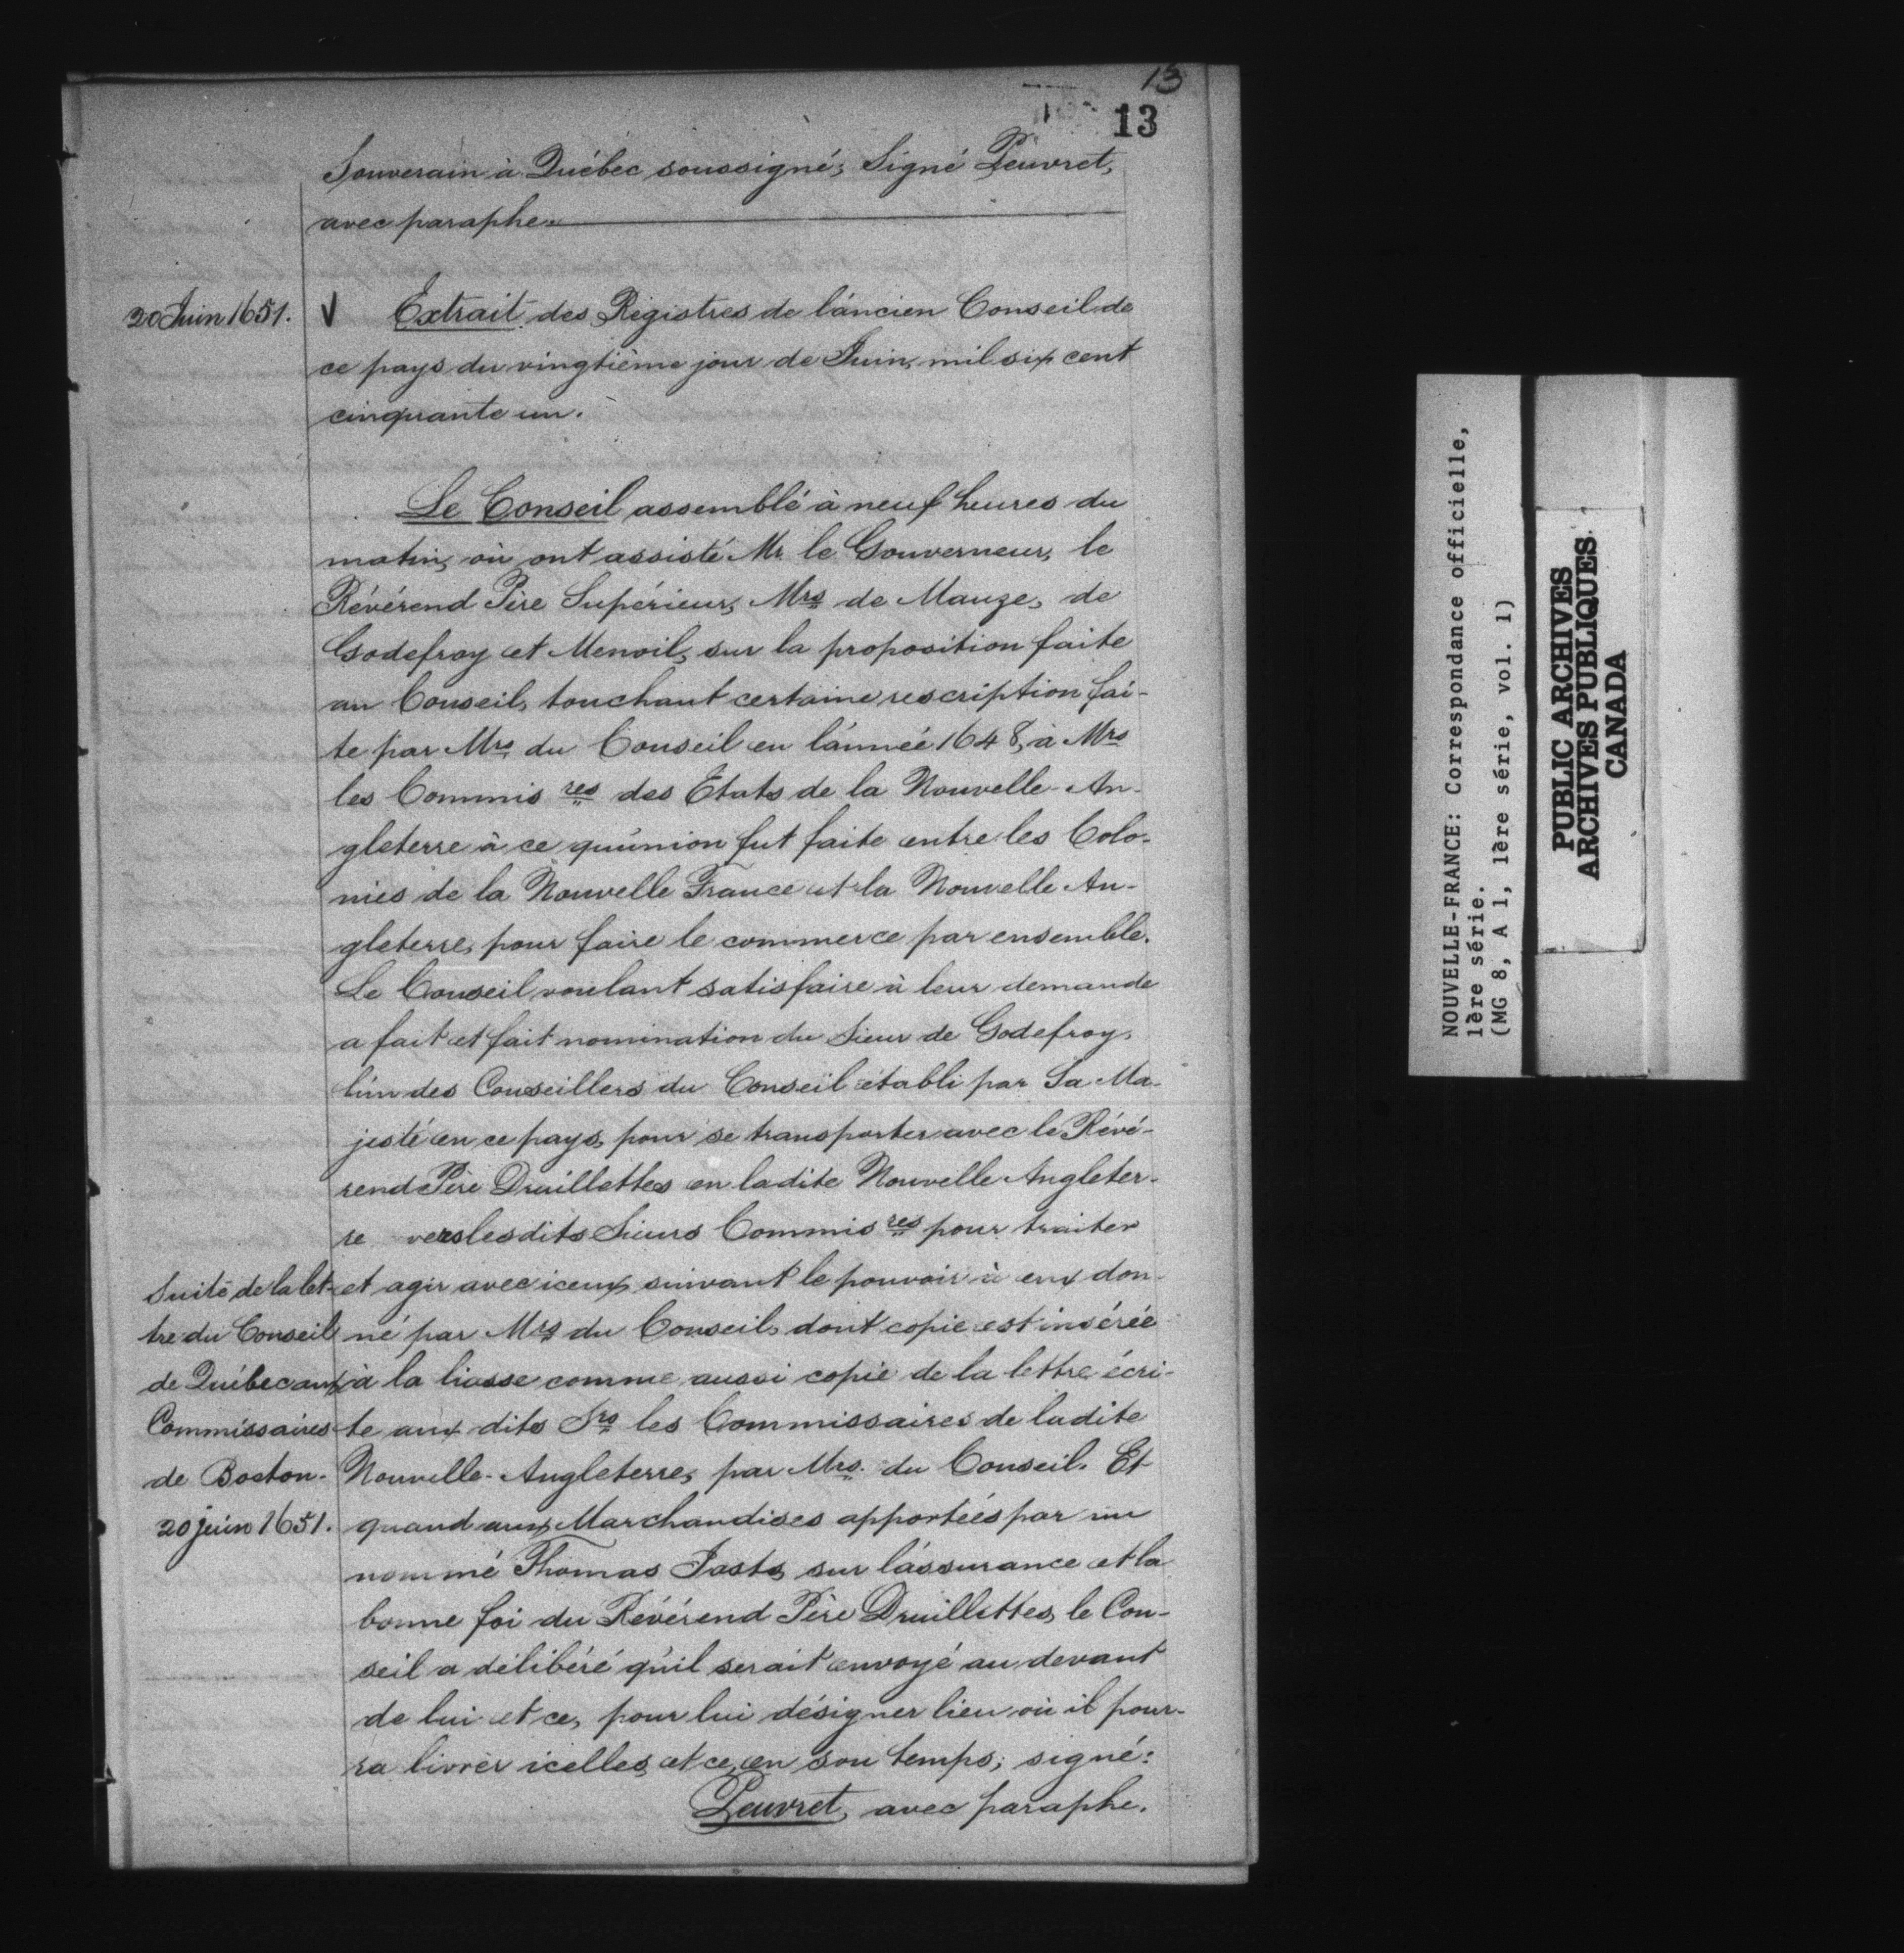 13
13
Souverain à Québec soussigné, Signé Peuvret,
avec paraphe.
20 Juin 1651.
V Extrait des Régistres de l'ancien Conseil de
ce pays du vingtième jour de Juin, mil six cent
cinquante un.
Le Conseil assemblé à neuf heures du
matin, où ont assisté Mr. le Gouverneur, le
Révérend Père Supérieur, Mrs de Mauze, de
Godefroy et Menoil, sur la proposition faite
au Conseil, touchant certaine rescription fai-
te par Mrs du Conseil en l'année 1648, à Mrs
les Commis res des Etats de la Nouvelle-An-
gleterre à ce qu'union fut faite entre les Colo-
nies de la Nouvelle France et la Nouvelle An-
gleterre, pour faire le commerce par ensemble.
Le Conseil voulant satisfaire à leur demande
a fait et fait nomination du Sieur de Godefroy,
l'un des Conseillers du Conseil établi par Sa Ma-
jesté en ce pays, pour se transporter avec le Révé-
rend Père Druillettes en ladite Nouvelle Angleter-
re vers lesdits Sieurs Commis res pour traiter
et agir avec iceux suivant le pouvoir à eux don-
né par Mrs du Conseil, dont copie est insérée
à la liasse comme aussi copie de la lettre écri-
te aux dits Srs les Commissaires de ladite
Nouvelle-Angleterre, par Mrs. du Conseil. Et
quand aux Marchandises apportées par un
nommé Thomas Josts, sur l'assurance et la
bonne foi du Révérend Père Druillettes, le Con-
seil a délibéré qu'il serait envoyé au devant
de lui et ce, pour lui désigner lieu où il pour-
ra livrer icelles, et ce, en son temps; signé:
Peuvret, avec paraphe.
Suite de la let-
tre du Conseil
de Québec aux
Commissaires
de Boston.
20 juin 1651.
NOUVELLE-FRANCE: Correspondance officielle,
1ère série.
(MG 8, A 1, 1ère série, vol. 1)
PUBLIC ARCHIVES
ARCHIVES PUBLIQUES
CANADA